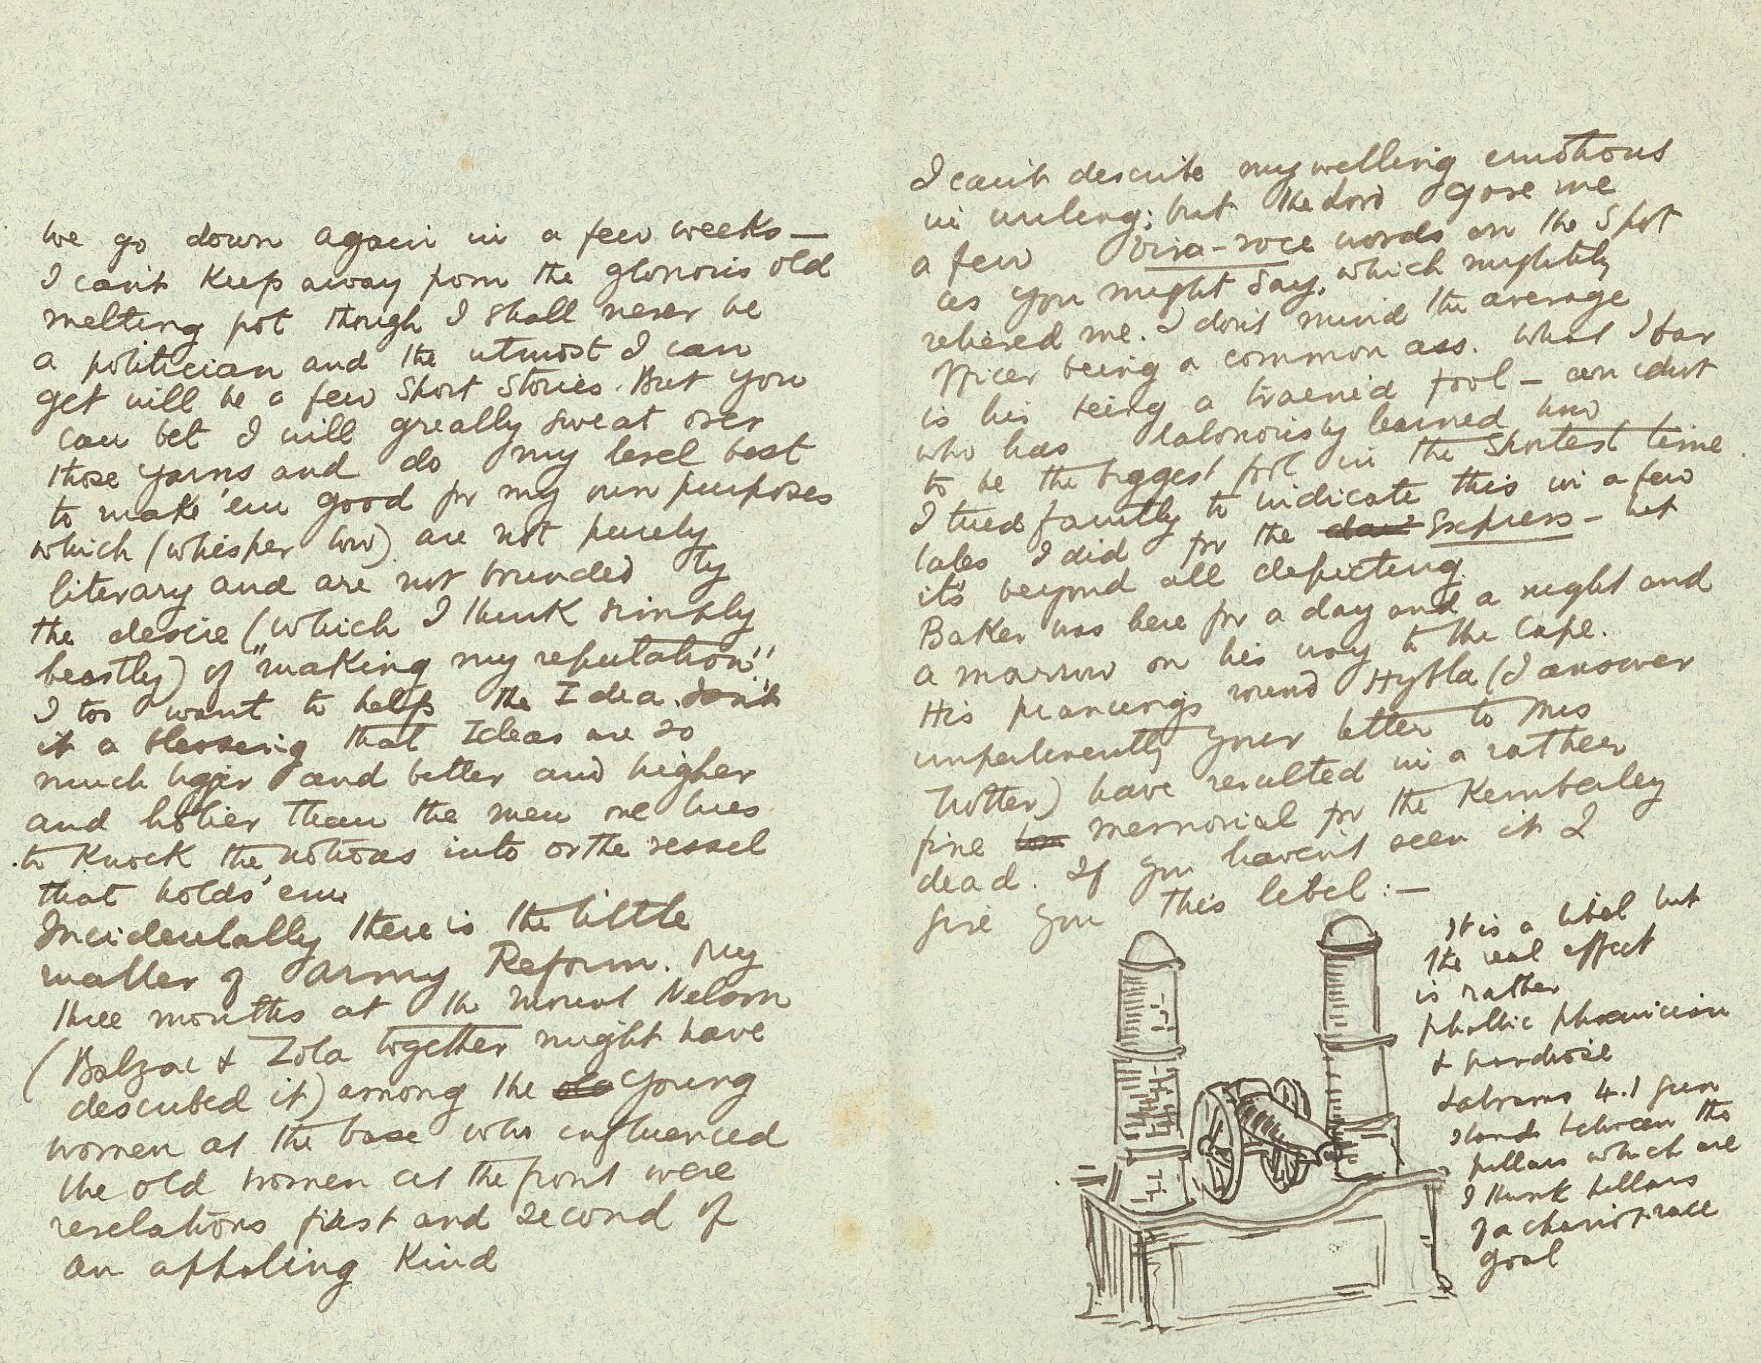 We go down again in a few weeks —
I can't keep away from the glorious old
melting pot though I shall never be
a politician and the utmost I can
get will be a few short stories. But you
can bet I will greatly sweat over
those yarns and do my level best
to make 'em good for my own purposes
which (whisper low) are not purely
literary and are not bounded by
the desire (which I think simply
beastly) of "making my reputation".
I too want to help the Idea. Isn't
it a blessing that Ideas are so
much bigger and better and higher
and holier than the men one hires
to knock the notions into or the vessel
that holds 'em
Incidentally there is the little
matter of Army Reform. My
three months at the Mount Nelson
(Balzac & Zola together might have
described it) among the old young
women at the base who influenced
the old women at the front were
revelations first and second of
an appaling kind
I can't describe my welling emotions
in writing; but the Lord gave me
a few viva-voce words on the spot
as you might say, which mightily
relieved me. I don't mind the average
officer being a common ass. What I bar
is his being a trained fool — an idiot
who has laboriously learned how
to be the biggest fool in the shortest time.
I tried faintly to indicate this in a few
tales I did for the Express — but
it's beyond all depicting.
Baker was here for a day and a night and
a morrow on his way to the Cape.
His prancings round Hybla (I answer
impertinently your letter to Mrs
Trotter) have resulted in a rather
fine memorial for the Kimberley
dead. If you haven't seen it I
give you this libel: —
It is a libel but
the real effect
is rather
phallic phoenician
& grandiose
Labrams 4.1 gun
stands between the
pillars which are
I think pillars
of a chariot race
goal